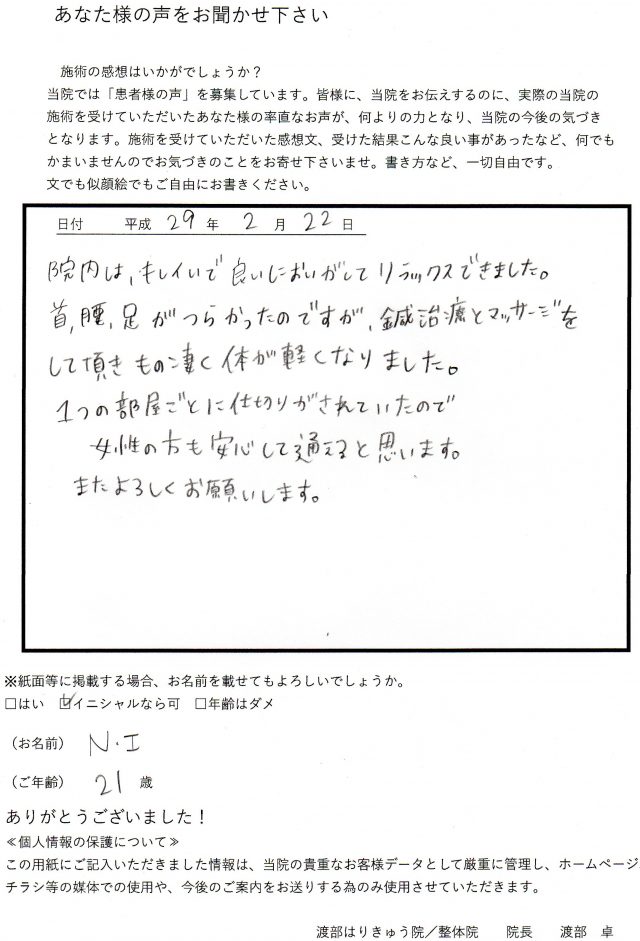 あなた様の声をお聞かせ下さい
施術の感想はいかがでしょうか？
当院では「患者様の声」を募集しています。皆様に、当院をお伝えするのに、実際の当院の
施術を受けていただいたあなた様の率直なお声が、何よりの力となり、当院の今後の気づき
となります。施術を受けていただいた感想文、受けた結果こんな良い事があったなど、何でも
かまいませんのでお気づきのことをお寄せ下さいませ。書き方など、一切自由です。
文でも似顔絵でもご自由にお書きください。
日付　平成 29 年 2 月 22 日
院内は、キレイいで良いにおいがしてリラックスできました。
首、腰、足がつらかったのですが、鍼治療とマッサージを
して頂きもの凄く体が軽くなりました。
1つの部屋ごとに仕切りがされていたので
女性の方も安心して通えると思います。
またよろしくお願いします。
※紙面等に掲載する場合、お名前を載せてもよろしいでしょうか。
□はい ☑イニシャルなら可 □年齢はダメ
（お名前） N・I
（ご年齢） 21 歳
ありがとうございました！
≪個人情報の保護について≫
この用紙にご記入いただきました情報は、当院の貴重なお客様データとして厳重に管理し、ホームページ
チラシ等の媒体での使用や、今後のご案内をお送りする為のみ使用させていただきます。
渡部はりきゅう院／整体院　院長　渡部　卓